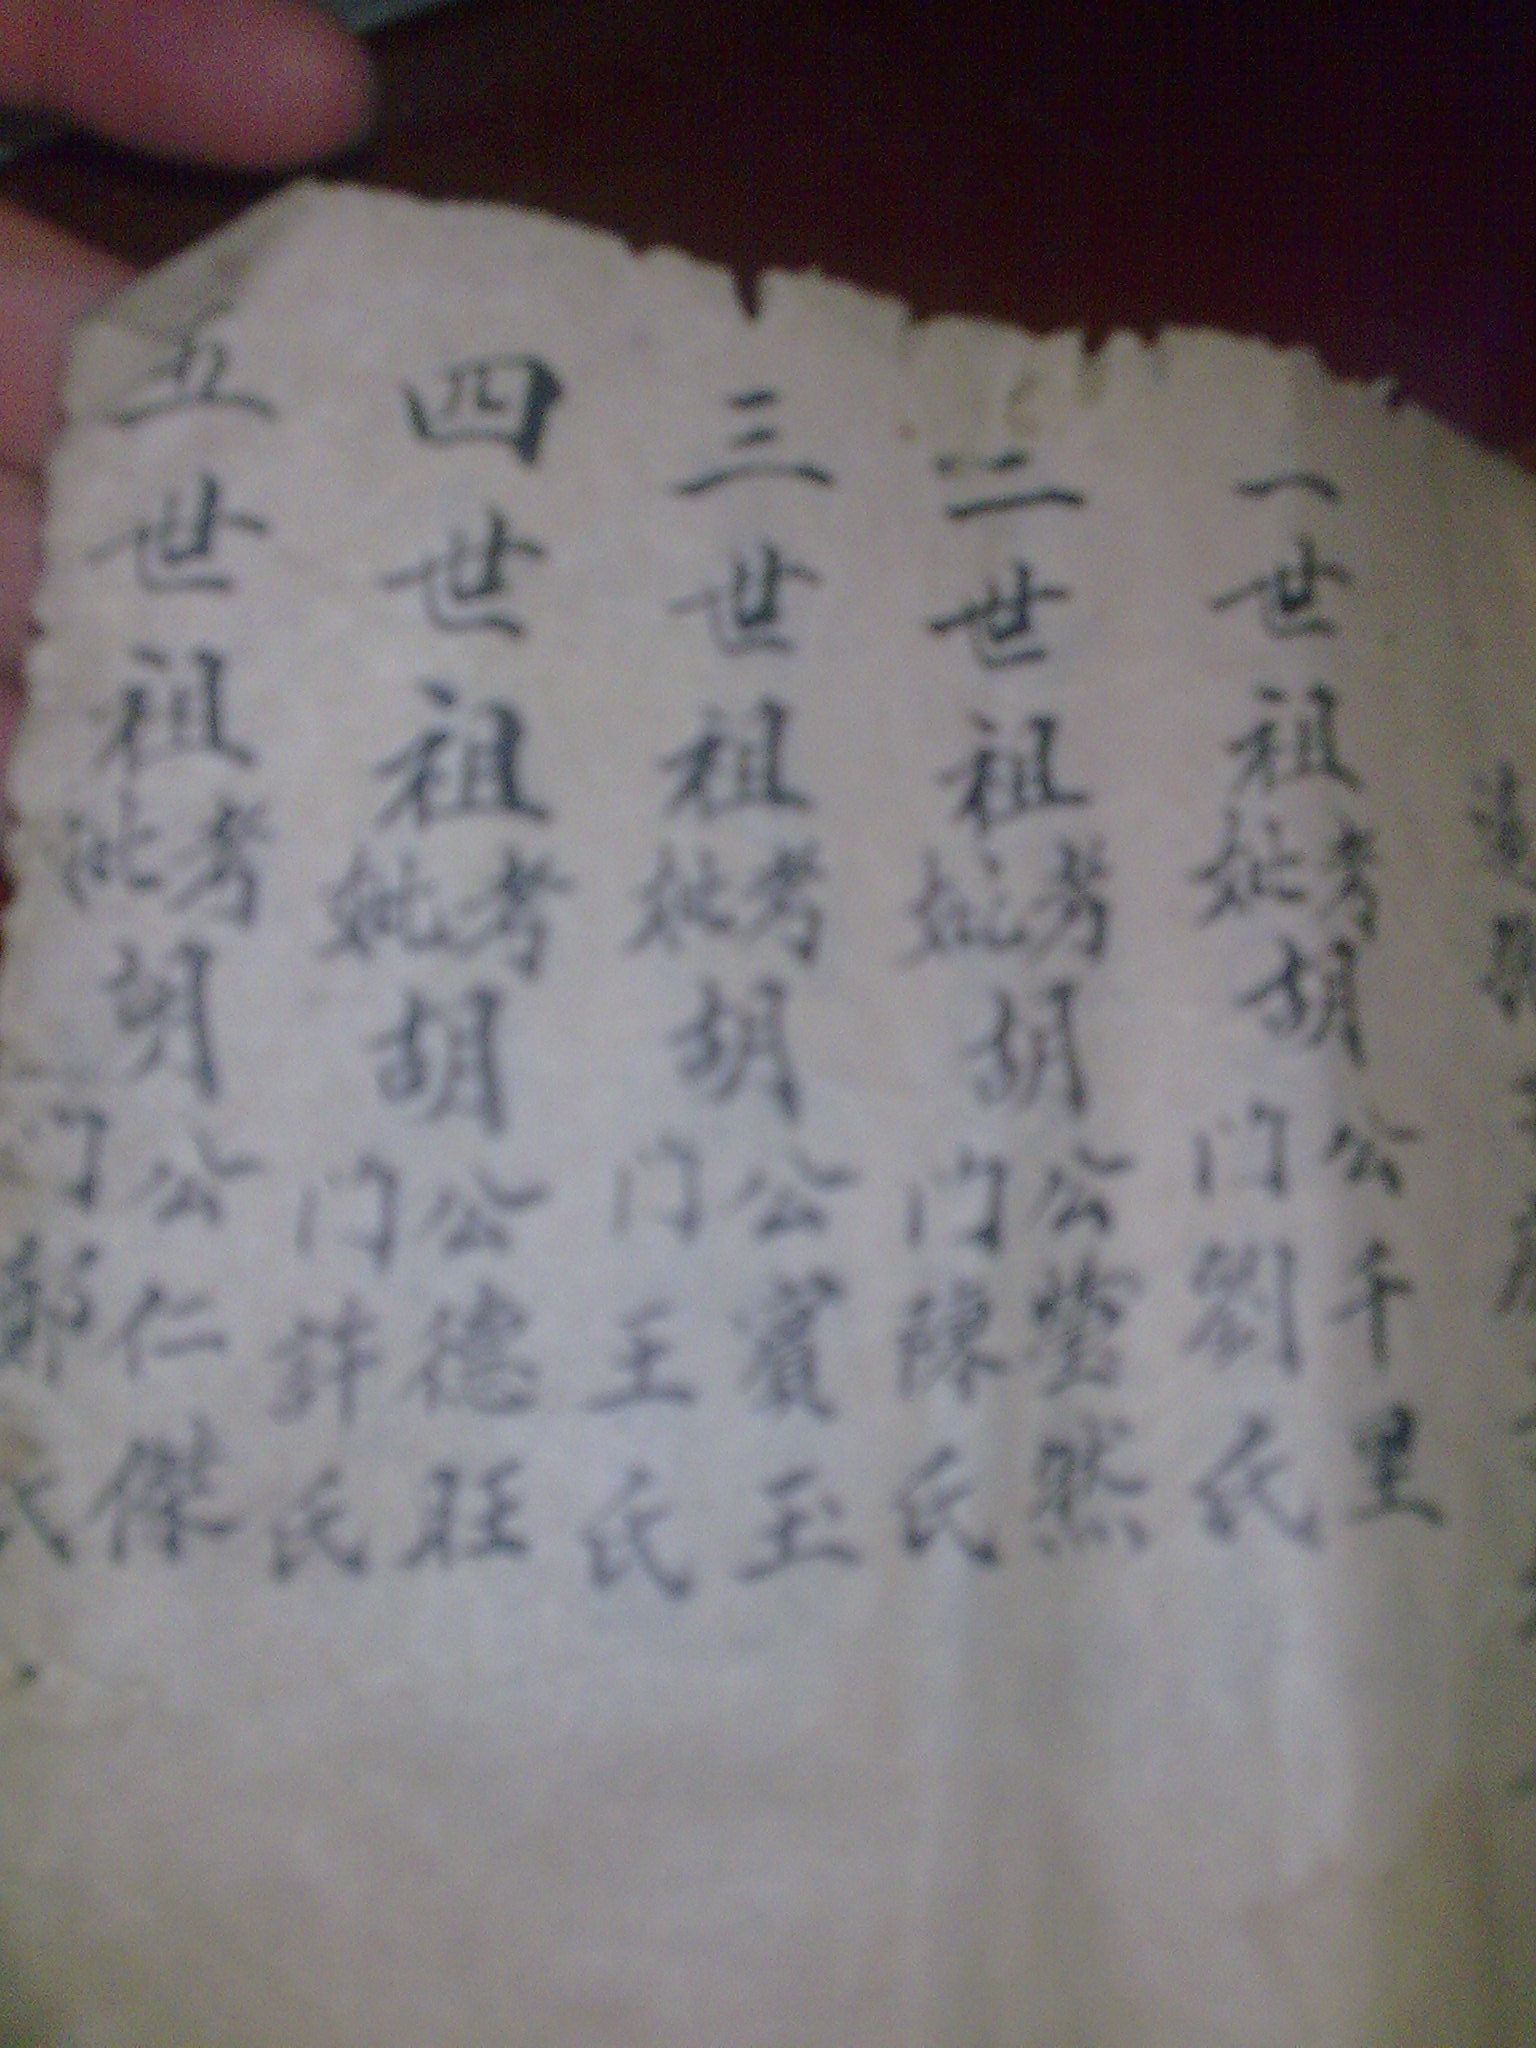 一世祖考妣胡公千里门劉氏
二世祖考妣胡公莹然门陳氏
三世祖考妣胡公賓玉门王氏
四世祖考妣胡公德旺门許氏
五世祖考妣胡公仁傑门鄭氏